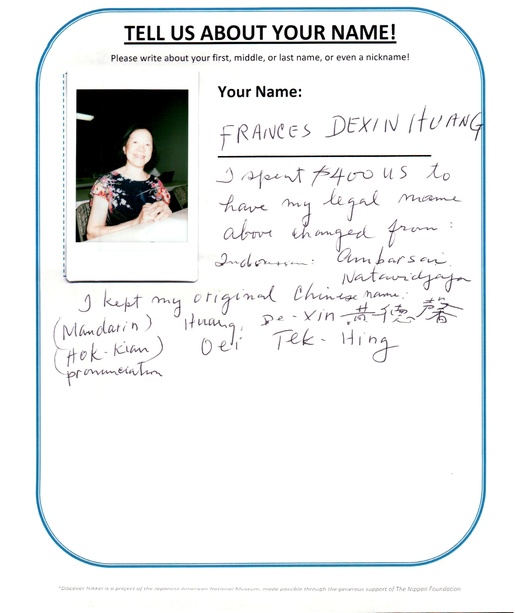 TELL US ABOUT YOUR NAME!
Please write about your first, middle, or last name, or even a nickname!
Your Name:
FRANCES DEXIN HUANG
I spent $400 US to
have my legal name
above changed from:
Indonesian: Ambarsari
Natawidjaja
I kept my original Chinese name:
(Mandarin) Huang, De-Xin 黄德馨
(Hok-Kian) Oei Tek-Hing
pronunciation
*Discover Nikkei is a project of the Japanese American National Museum, made possible through the generous support of The Nippon Foundation